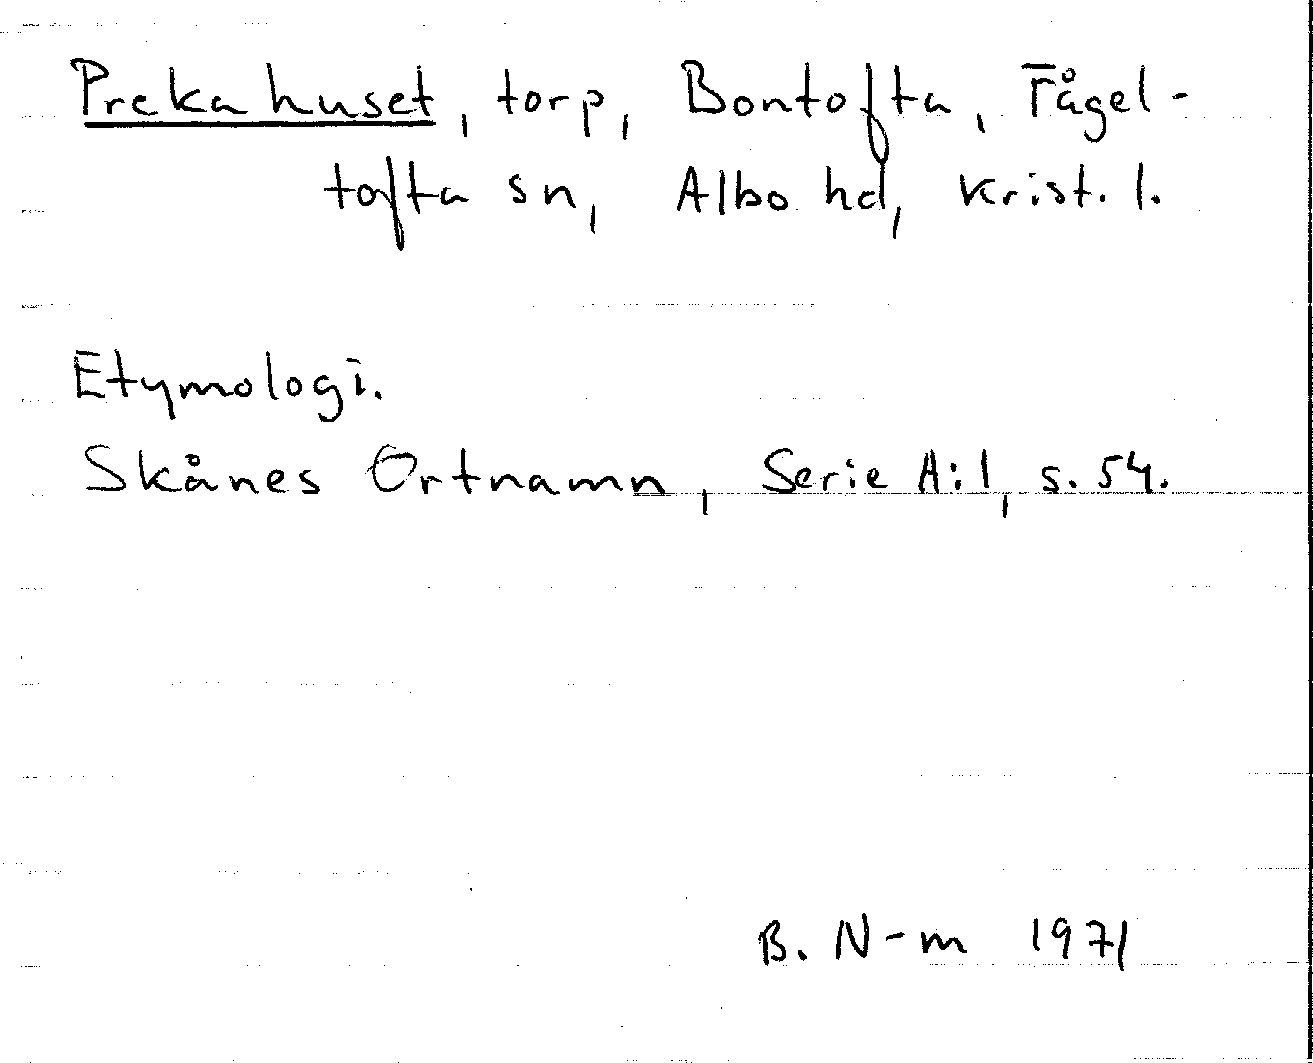 Prekahuset, torp, Bontofta, Fågel-
tofta sn, Albo hd, Krist. l.
Etymologi.
Skånes Ortnamn, Serie A:1, s. 54.
B. N-m 1971